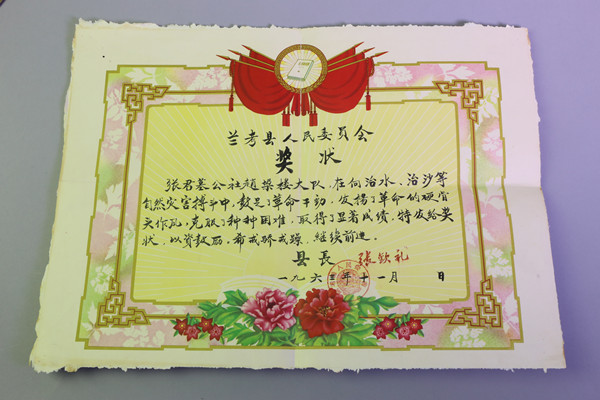 兰考县人民委员会
奖状
张君墓公社赵垛楼大队，在向治水、治沙等
自然灾害搏斗中，鼓足了革命干劲，发扬了革命的硬骨
头作风，克服了种种困难，取得了显著成绩，特发给奖
状，以资鼓励，希戒骄戒躁，继续前进。
县長 张钦礼
一九六三年十一月 日